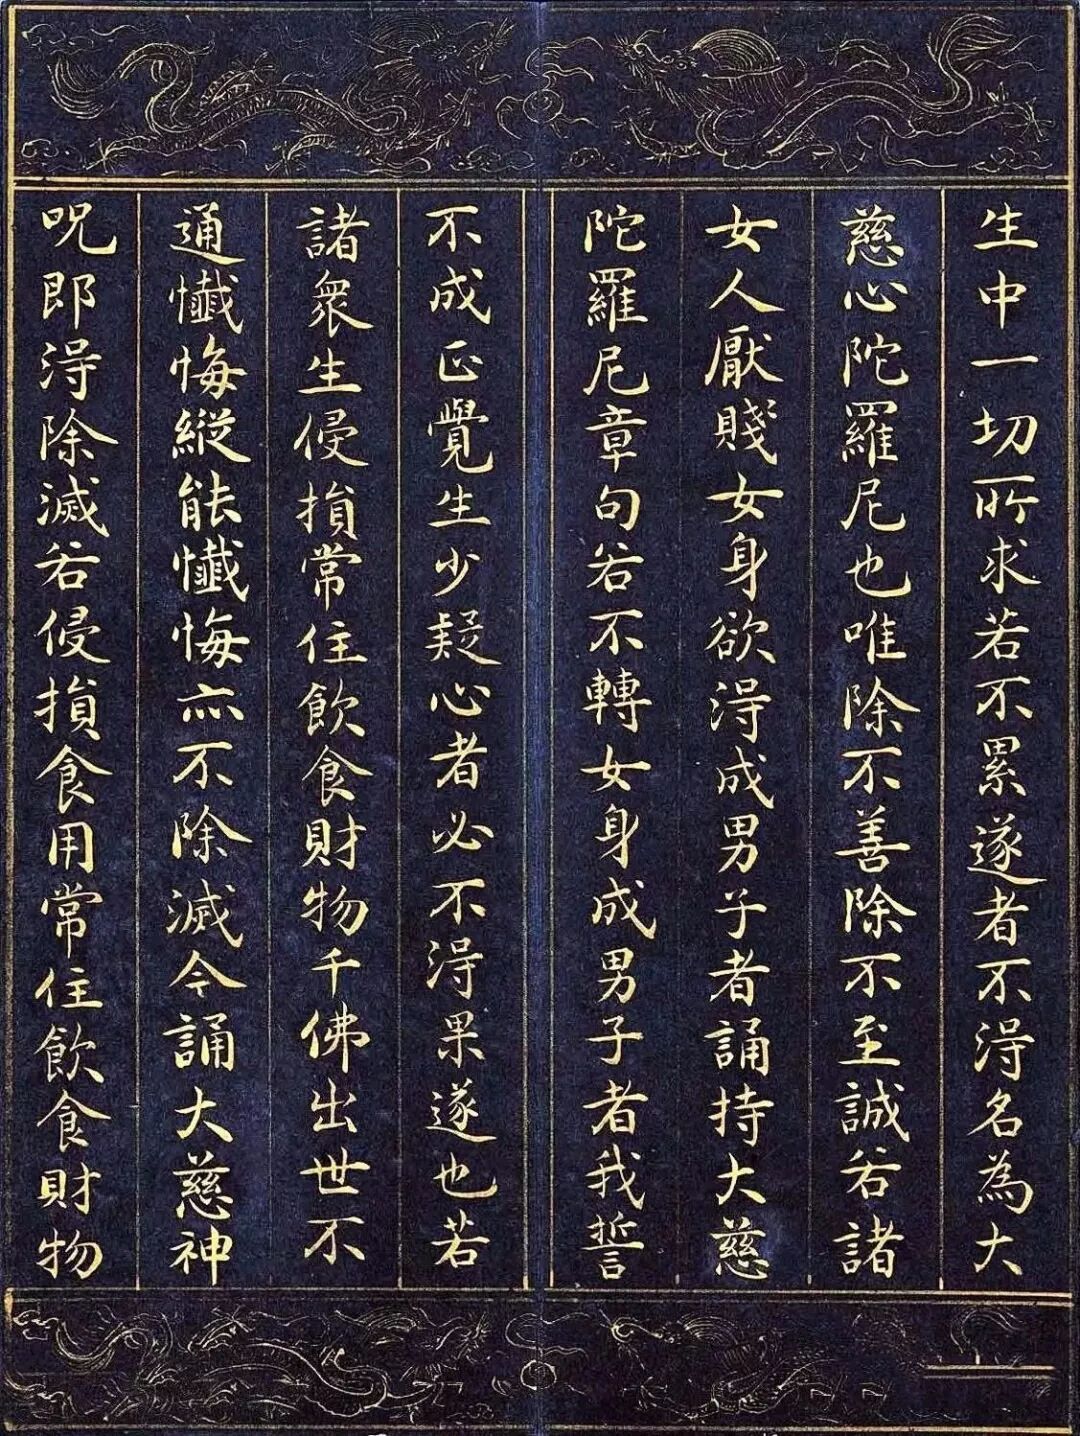 生中一切所求若不累遂者不淂名為大
慈心陀羅尼也唯除不善除不至誠若諸
女人厭賤女身欲淂成男子者誦持大慈
陀羅尼章句若不轉女身成男子者我誓
不成正覺生少疑心者必不淂果遂也若
諸衆生侵損常住飲食財物千佛出世不
通懺悔縱能懺悔亦不除滅今誦大慈神
呪即淂除滅若侵損食用常住飲食財物